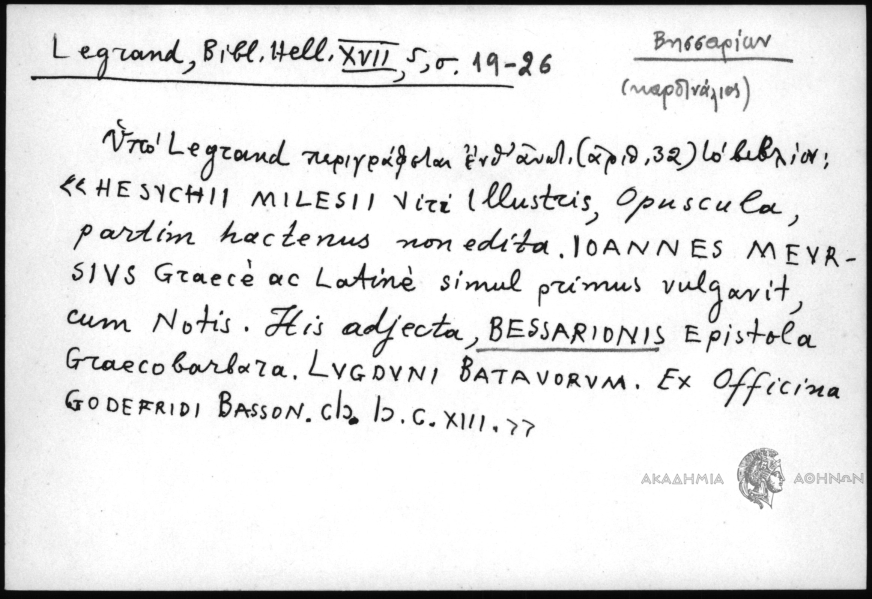 Legrand, Bibl. Hell. XVII, 5, σ. 19-26
Βησσαρίων
(καρδινάλιος)
Ὑπό Legrand περιγράφεται ἐνθ' ἀνωτ. (ἀριθ. 32) τό βιβλίον:
«HESYCHII MILESII Viri Illustris, Opuscula,
partim hactenus non edita. IOANNES MEVR-
SIVS Graecè ac Latinè simul primus vulgavit,
cum Notis. His adjecta, BESSARIONIS Epistola
Graecobarbara. LVGDVNI BATAVORVM. Ex Officina
GODEFRIDI BASSON. cIↃ. IↃ. C. XIII.»
ΑΚΑΔΗΜΙΑ ΑΘΗΝΩΝ